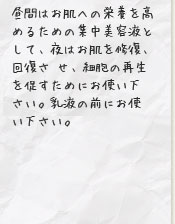 昼間はお肌への栄養を高
めるための集中美容液と
して、夜はお肌を修復、
回復さ せ、細胞の再生
を促すためにお使い下
さい。乳液の前にお使
い下さい。